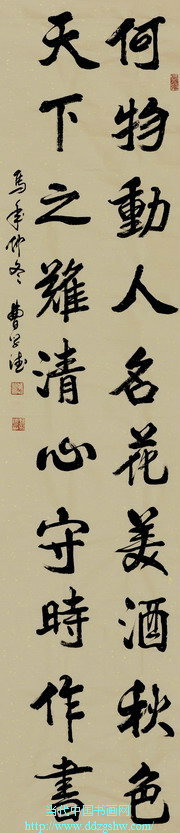 何物動人名花美酒秋色
天下之難清心守時作書
馬年仲冬 曹
当代中国书画网
http://www.ddzgshw.com/